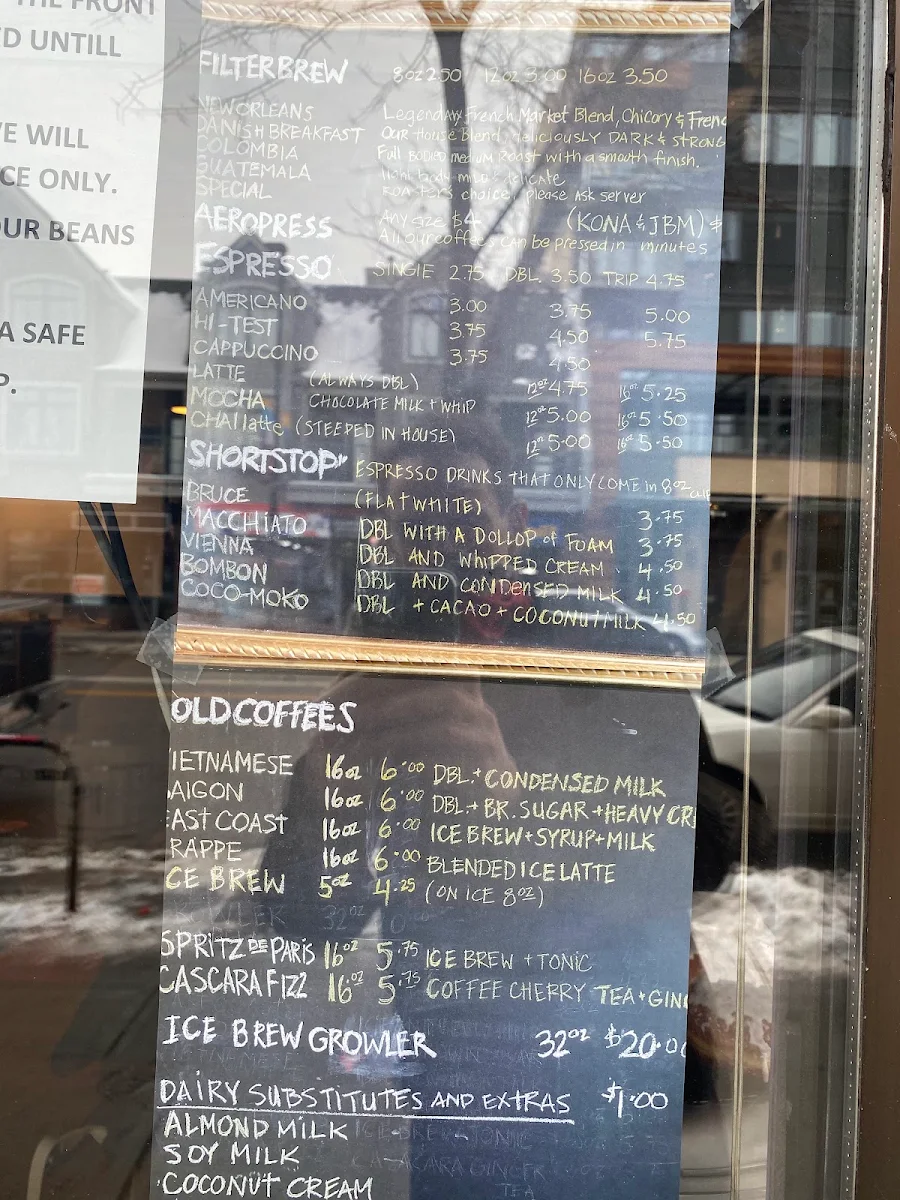 THE FRONT
UNTILL
WILL
ONLY.
OUR BEANS
A SAFE
FILTER BREW 8oz 2.50 12oz 3.00 16oz 3.50
NEW ORLEANS Legendary French Market Blend, Chicory &
DANISH BREAKFAST Our House Blend, deliciously DARK & STRONG
COLOMBIA Full BODIED medium Roast with a smooth finish.
GUATEMALA light body mild delicate
SPECIAL choice, please ask server
AEROPRESS Any size $4 (KONA & JBM) $
All our coffees can be pressed in minutes
ESPRESSO SINGlE 2.75 DBL. 3.50 TRIP 4.75
AMERICANO 3.00 3.75 5.00
HI-TEST 3.75 4.50 5.75
CAPPUCCINO 3.75 4.50
LATTE (ALWAYS DBL) 12oz 4.75 16oz 5.25
MOCHA CHOCOLATE MILK + WHIP 12oz 5.00 16oz 5.50
CHAI latte (STEEPED IN HOUSE) 12oz 5.00 16oz 5.50
SHORTSTOP ESPRESSO DRINKS THAT ONLY COME in 8oz
BRUCE (FLAT WHITE) 3.75
MACCHIATO DBL WITH A DOLLOP of FOAM 3.75
VIENNA DBL AND WHIPPED CREAM 4.50
BOMBON DBL AND CONDENSED MILK 4.50
COCO-MOKO DBL + CACAO + COCONUT MILK 4.50
OLD COFFEES
IETNAMESE 16oz 6.00 DBL + CONDENSED MILK
AIGON 16oz 6.00 DBL + BR. SUGAR + HEAVY CR
EAST COAST 16oz 6.00 ICE BREW + SYRUP + MILK
RAPPE 16oz 6.00 BLENDED ICE LATTE
CE BREW 5oz 4.25 (ON ICE 8oz)
SPRITZ DE PARIS 16oz 5.75 ICE BREW + TONIC
CASCARA FIZZ 16oz 5.75 COFFEE CHERRY TEA + GING
ICE BREW GROWLER 32oz $20.00
DAIRY SUBSTITUTES AND EXTRAS $1.00
ALMOND MILK
SOY MILK
COCONUT CREAM